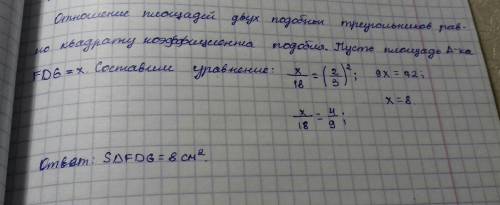 Отношение площадей двух подобных треугольников рав-
но квадрату коэффициента подобия. Пусть площадь Δ-ка
FDG = x. Составим уравнение: x/18 = (2/3)²; 9x = 72;
x/18 = 4/9; x = 8
Ответ: SΔFDG = 8 см².